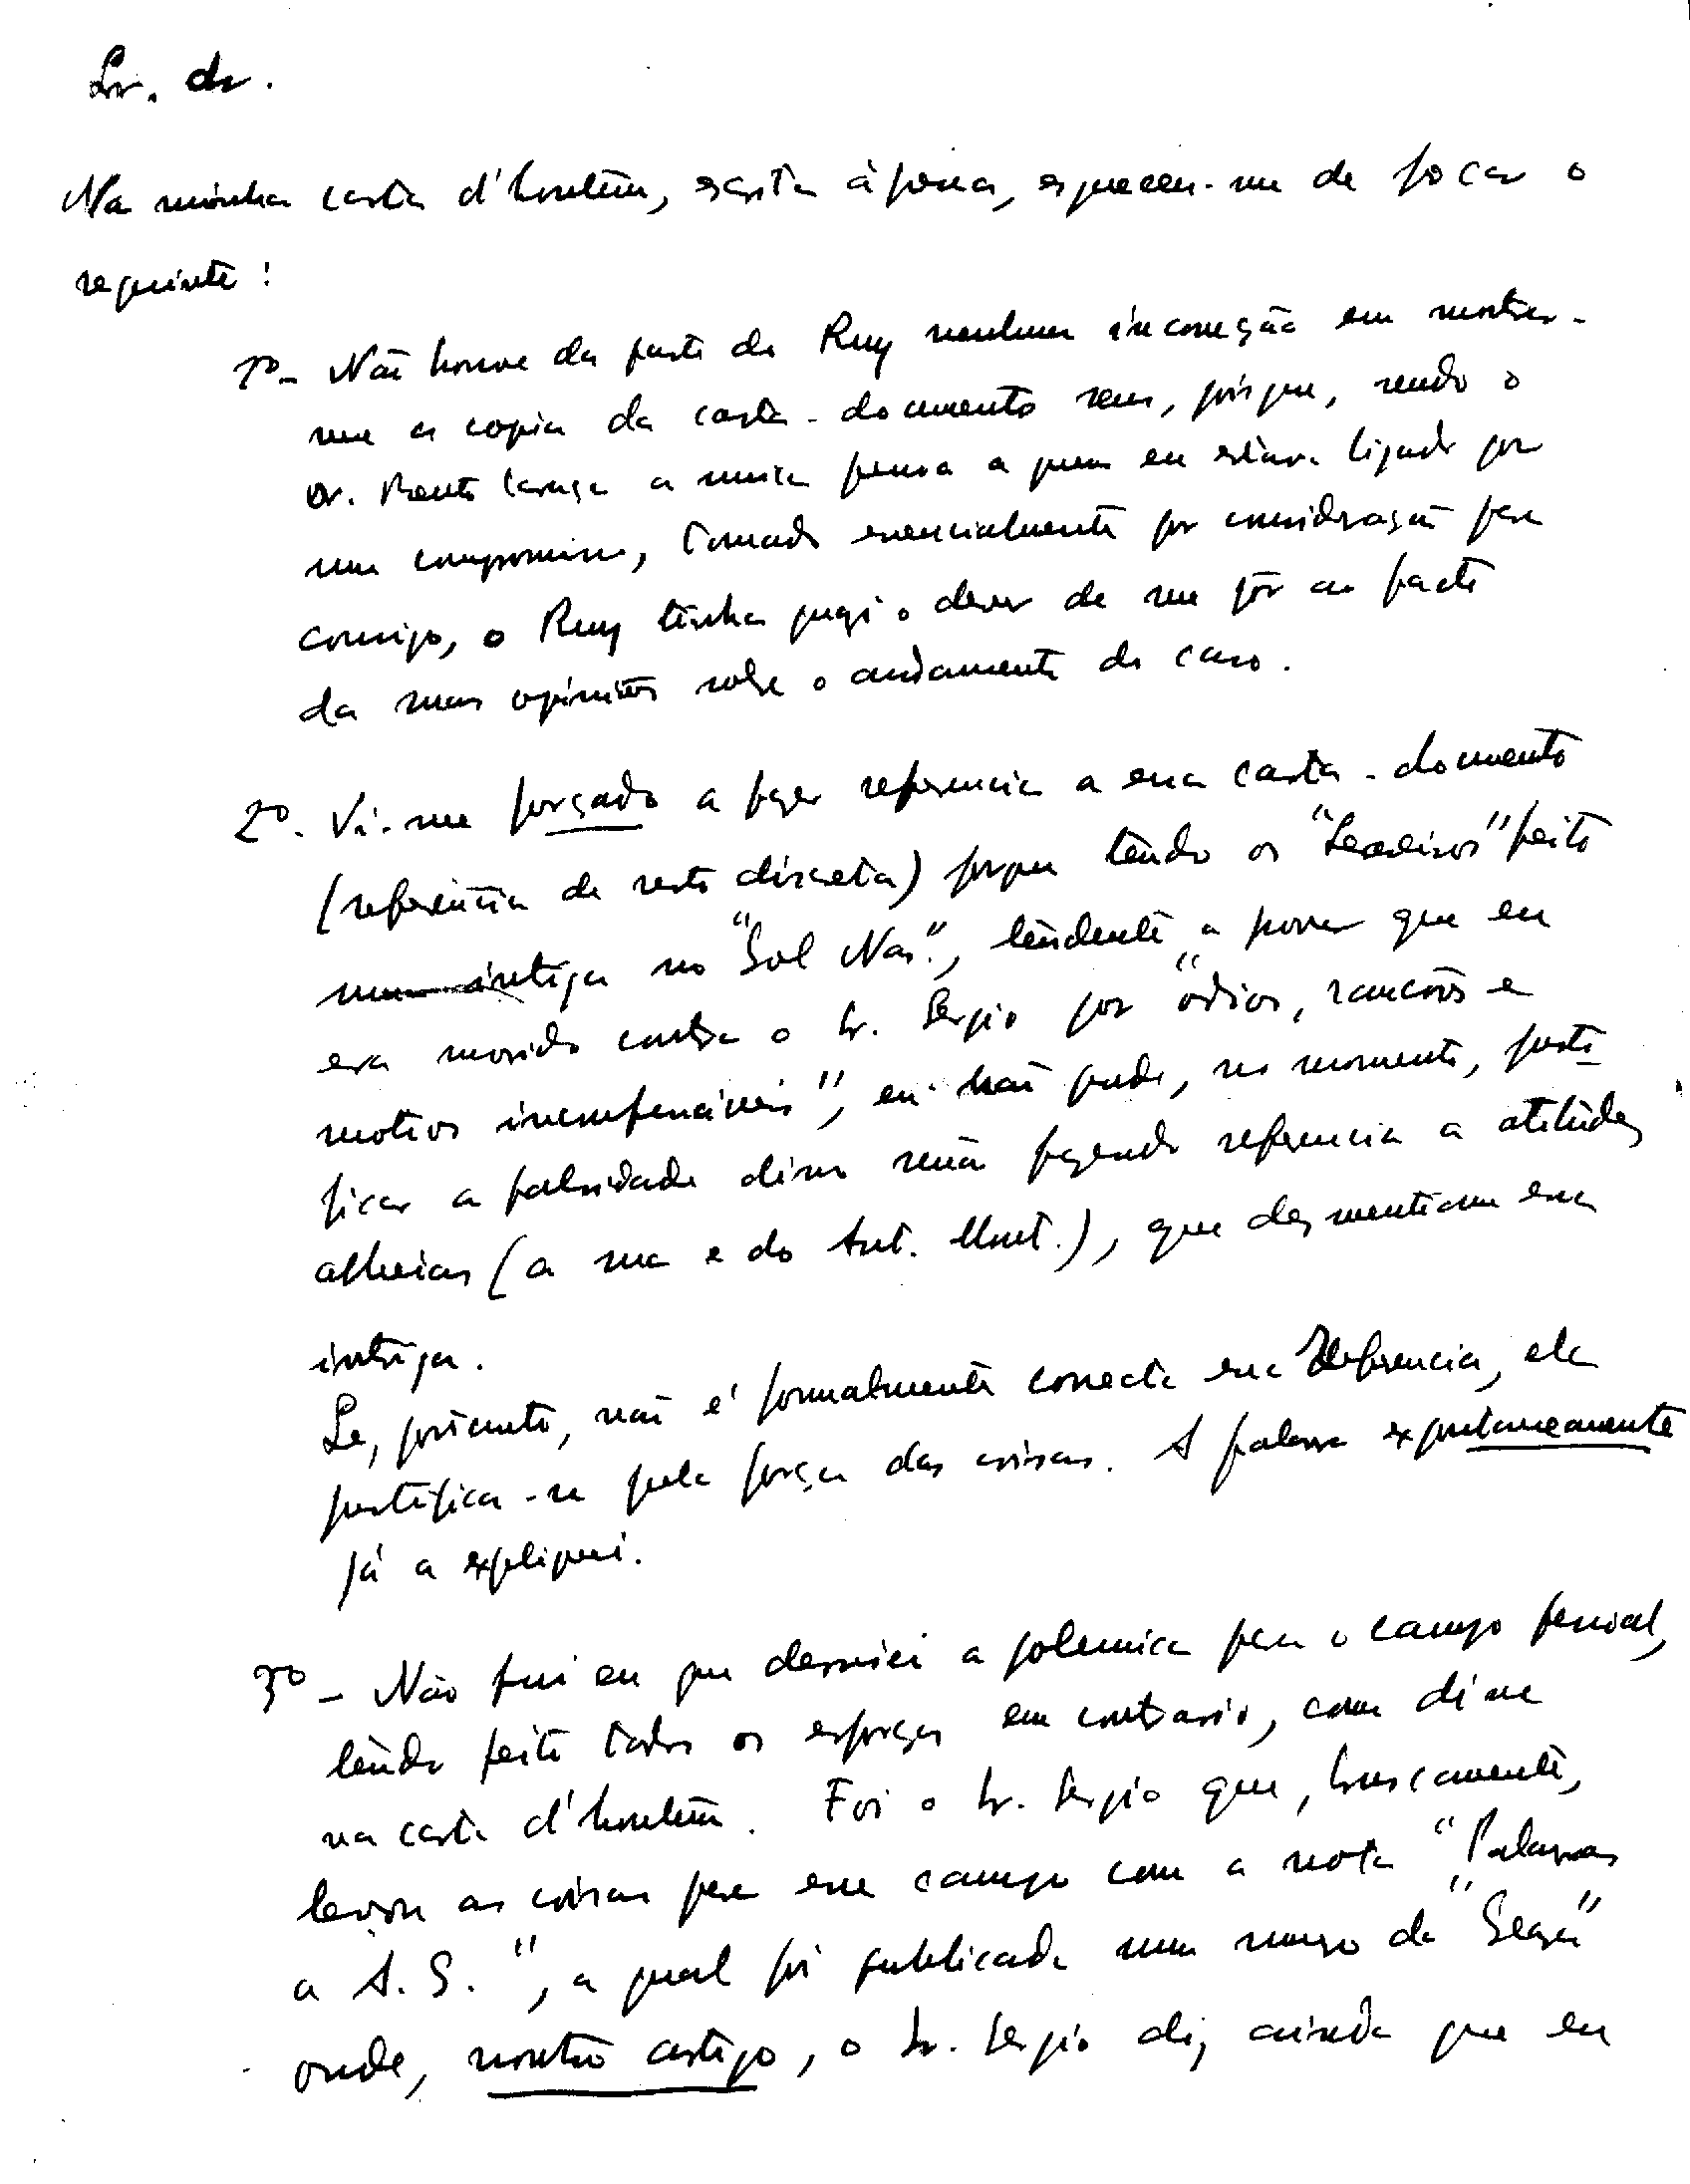 Sr. dr.
Na minha carta d'hontem, escrita à pressa, esqueceu-me de focar o
seguinte:
1º - Não houve da parte do Ruy nenhuma incorreção em mostrar-
me a copia da carta-documento sua, pois que, sendo o
Dr. Bento Caraça a unica pessoa a quem eu estava ligado por
um compromisso, tomado essencialmente por consideração para
consigo, o Ruy tinha quasi o dever de me pôr ao facto
da suas opiniões sobre o andamento do caso.
2º - Vi-me forçado a fazer referencia a essa carta-documento
(referência de resto discreta) porque tendo os "Seareiros" feito
intriga no "Sol Nas.", tendente a provar que eu
era movido contra o Sr. Sergio por "odios, rancôres e
motivos inconfessáveis", eu não pude, no momento, justi-
ficar a falsidade disso senão fazendo referencia a atitudes
alheias (a sua e do Ant.), que desmentiam essa
intriga.
Se, portanto, não é formalmente correcta essa referencia, ela
justifica-se pela força das coisas. A palavra expontaneamente
já a expliquei.
3º - Não fui eu que desviei a polemica para o campo pessoal,
tendo feito todos os esforços em contrario, como disse
na carta d'hontem. Foi o Sr. Sergio que, bruscamente,
levou as coisas para esse campo com a nota "Palavras
a A. S.", a qual foi publicada num numero da "Seara"
onde, noutro artigo, o Sr. Sergio diz ainda que eu